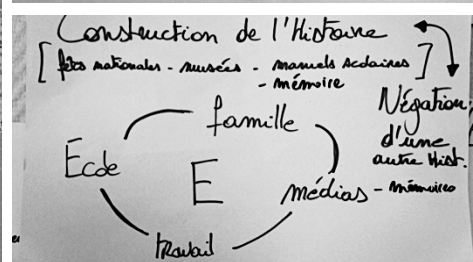 Construction de l'Histoire
[fêtes nationales - musées - manuels scolaires]
- mémoire
Négation
d'une
autre Hist.
famille
Ecole
E
médias - mémoires
travail